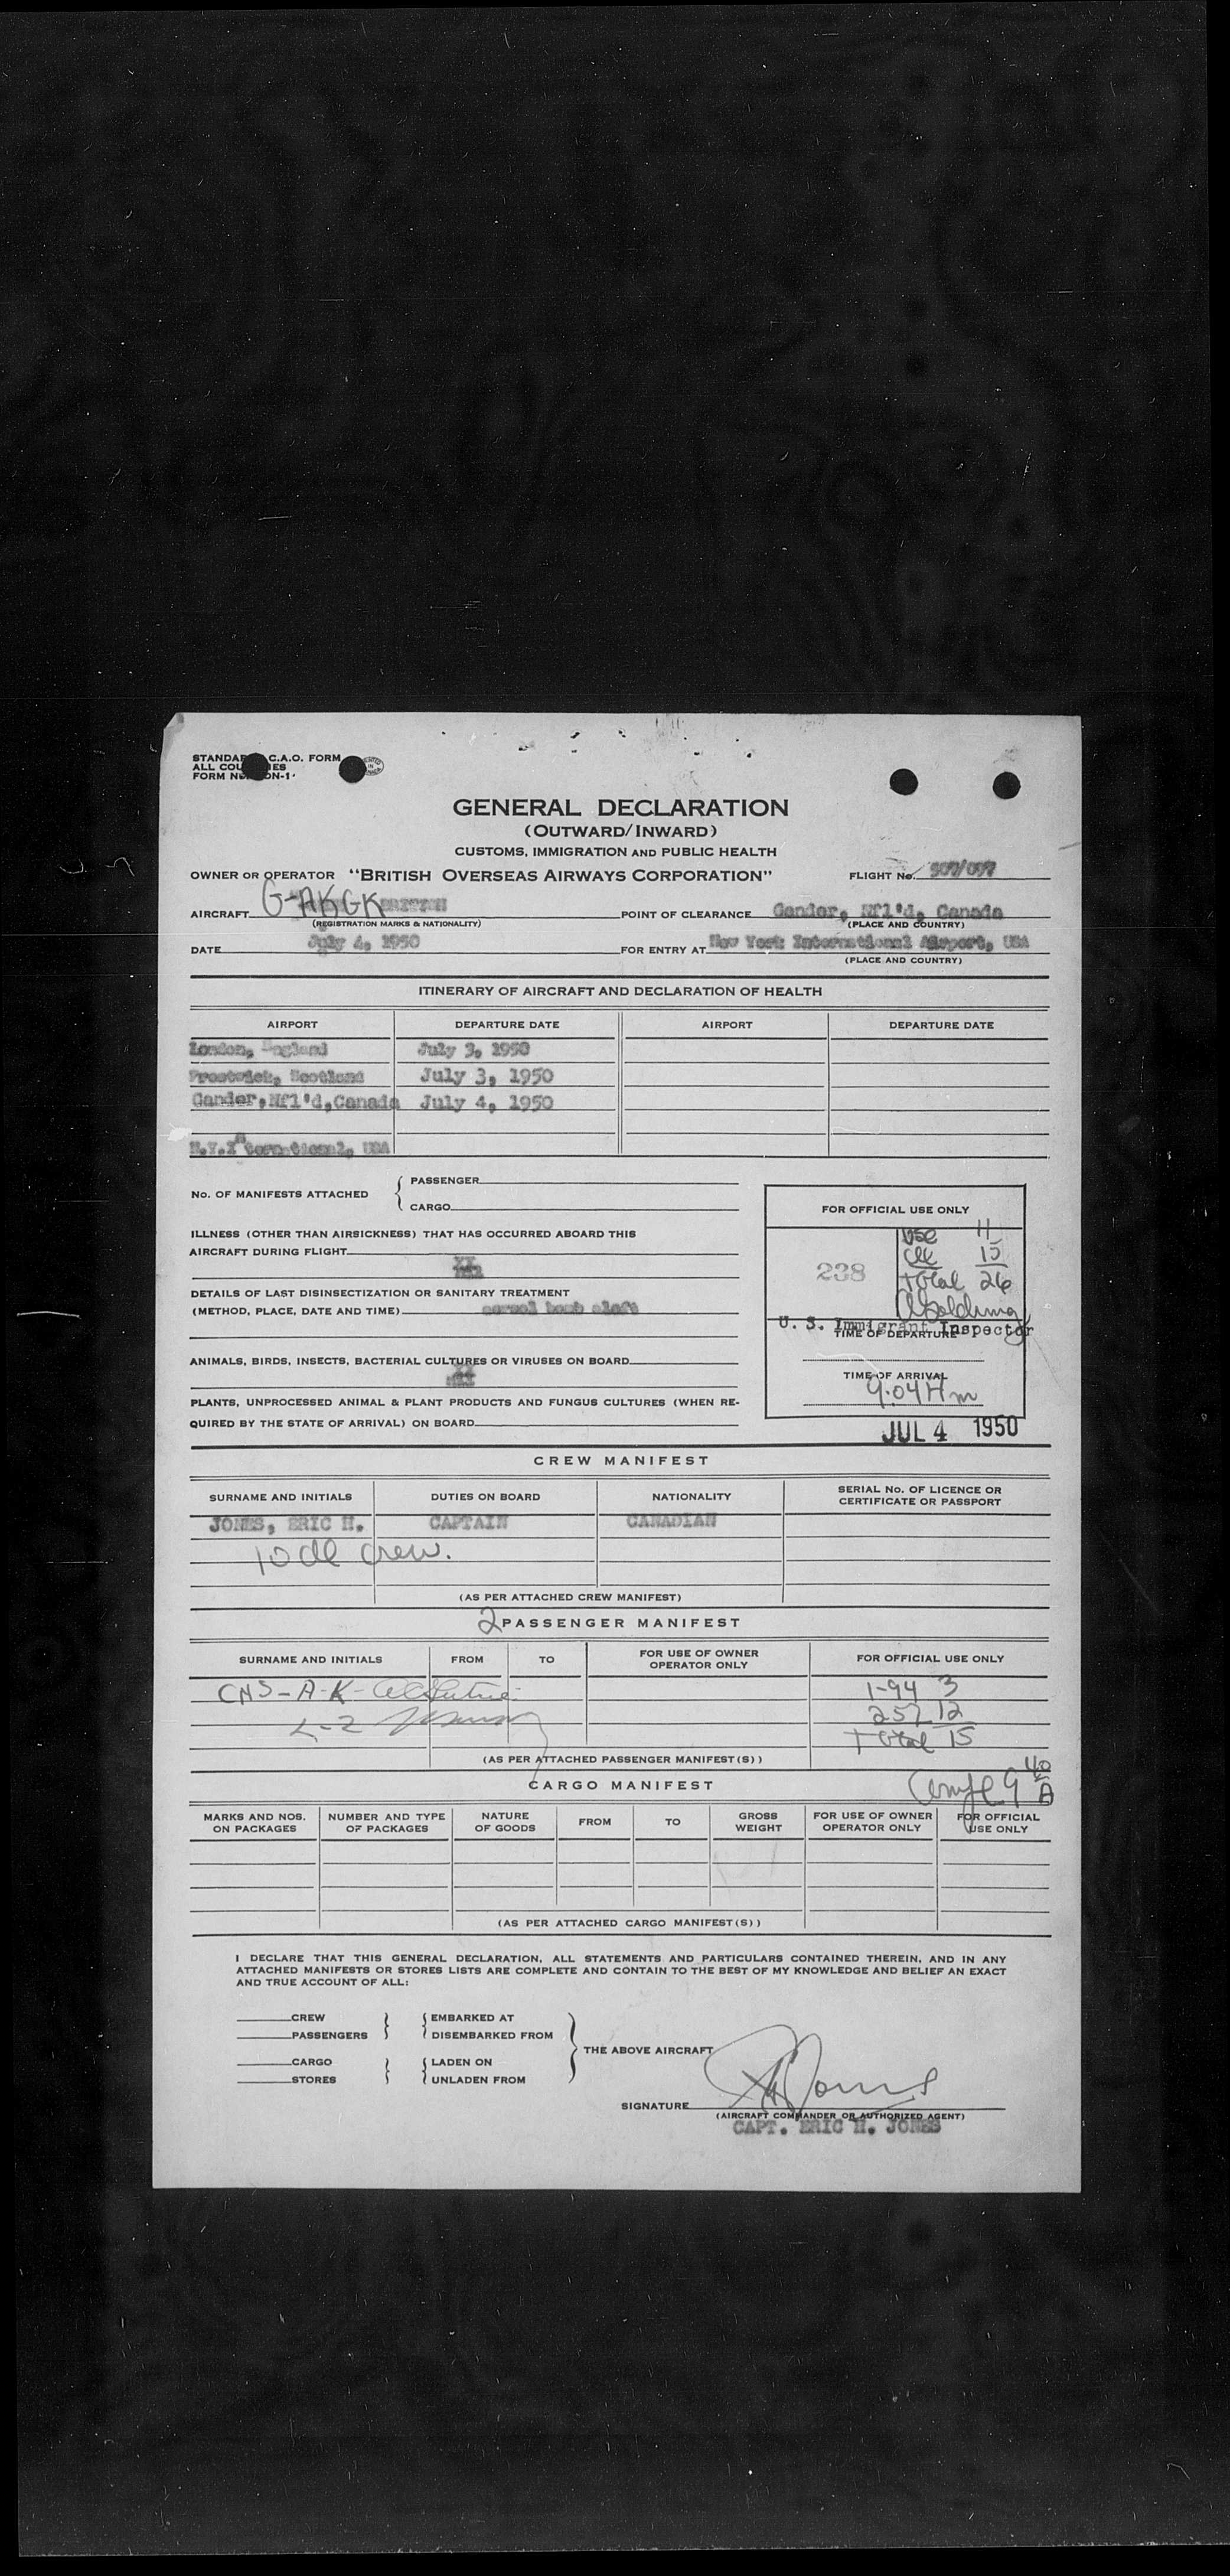 STANDARD C.A.O. FORM
ALL COUNTRIES
FORM ON-1
GENERAL DECLARATION
(OUTWARD/INWARD)
CUSTOMS, IMMIGRATION AND PUBLIC HEALTH
OWNER OR OPERATOR "BRITISH OVERSEAS AIRWAYS CORPORATION" FLIGHT No.
AIRCRAFT G-AKGK BRITISH POINT OF CLEARANCE Gander, Nfl'd, Canada
(REGISTRATION MARKS & NATIONALITY) (PLACE AND COUNTRY)
DATE July 4, 1950 FOR ENTRY AT New York International Airport, USA
(PLACE AND COUNTRY)
ITINERARY OF AIRCRAFT AND DECLARATION OF HEALTH
AIRPORT DEPARTURE DATE AIRPORT DEPARTURE DATE
London, England July 3, 1950
Prestwick, Scotland July 3, 1950
Gander,Nfl'd,Canada July 4, 1950
N.Y.International, USA
No. OF MANIFESTS ATTACHED PASSENGER
CARGO
FOR OFFICIAL USE ONLY
ILLNESS (OTHER THAN AIRSICKNESS) THAT HAS OCCURRED ABOARD THIS
AIRCRAFT DURING FLIGHT
USC 11
238 15
Total 26
DETAILS OF LAST DISINSECTIZATION OR SANITARY TREATMENT
(METHOD, PLACE, DATE AND TIME) aerosol bomb aloft
U. S. Immigrant Inspector
TIME OF DEPARTURE
ANIMALS, BIRDS, INSECTS, BACTERIAL CULTURES OR VIRUSES ON BOARD
TIME OF ARRIVAL
9:04
PLANTS, UNPROCESSED ANIMAL & PLANT PRODUCTS AND FUNGUS CULTURES (WHEN RE-
QUIRED BY THE STATE OF ARRIVAL) ON BOARD
JUL 4 1950
CREW MANIFEST
SURNAME AND INITIALS DUTIES ON BOARD NATIONALITY SERIAL No. OF LICENCE OR
CERTIFICATE OR PASSPORT
JONES, ERIC H. CAPTAIN CANADIAN
10 crew.
(AS PER ATTACHED CREW MANIFEST)
2 PASSENGER MANIFEST
SURNAME AND INITIALS FROM TO FOR USE OF OWNER
OPERATOR ONLY FOR OFFICIAL USE ONLY
1-94 3
257 12
Total 15
(AS PER ATTACHED PASSENGER MANIFEST(S))
CARGO MANIFEST
MARKS AND NOS.
ON PACKAGES NUMBER AND TYPE
OF PACKAGES NATURE
OF GOODS FROM TO GROSS
WEIGHT FOR USE OF OWNER
OPERATOR ONLY FOR OFFICIAL
USE ONLY
(AS PER ATTACHED CARGO MANIFEST(S))
I DECLARE THAT THIS GENERAL DECLARATION, ALL STATEMENTS AND PARTICULARS CONTAINED THEREIN, AND IN ANY
ATTACHED MANIFESTS OR STORES LISTS ARE COMPLETE AND CONTAIN TO THE BEST OF MY KNOWLEDGE AND BELIEF AN EXACT
AND TRUE ACCOUNT OF ALL:
CREW EMBARKED AT
PASSENGERS DISEMBARKED FROM
THE ABOVE AIRCRAFT
CARGO LADEN ON
STORES UNLADEN FROM
SIGNATURE
(AIRCRAFT COMMANDER OR AUTHORIZED AGENT)
CAPT. ERIC H. JONES